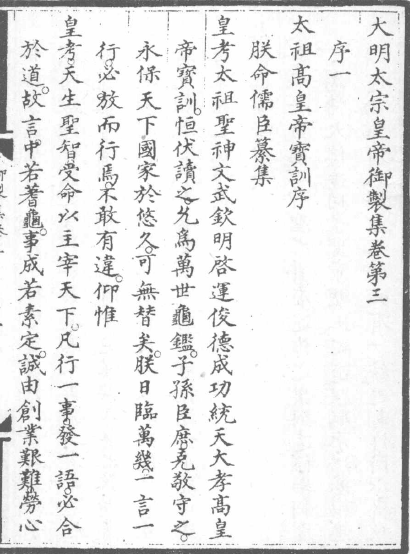 大明太宗皇帝御製集卷第三
序一
太祖高皇帝寶訓序
朕命儒臣纂集
皇考太祖聖神文武欽明啓運俊德成功統天大孝高皇
帝寶訓。恒伏讀之。允爲萬世龜鑑。子孫臣庶。克敬守之。
永保天下國家於悠久。可無替矣。朕日臨萬幾。一言一
行。必敩而行焉。不敢有違。仰惟
皇考天生聖智。受命以主宰天下。凡行一事。發一語。必合
於道。故言中若蓍龜。事成若素定。誠由創業艱難。勞心